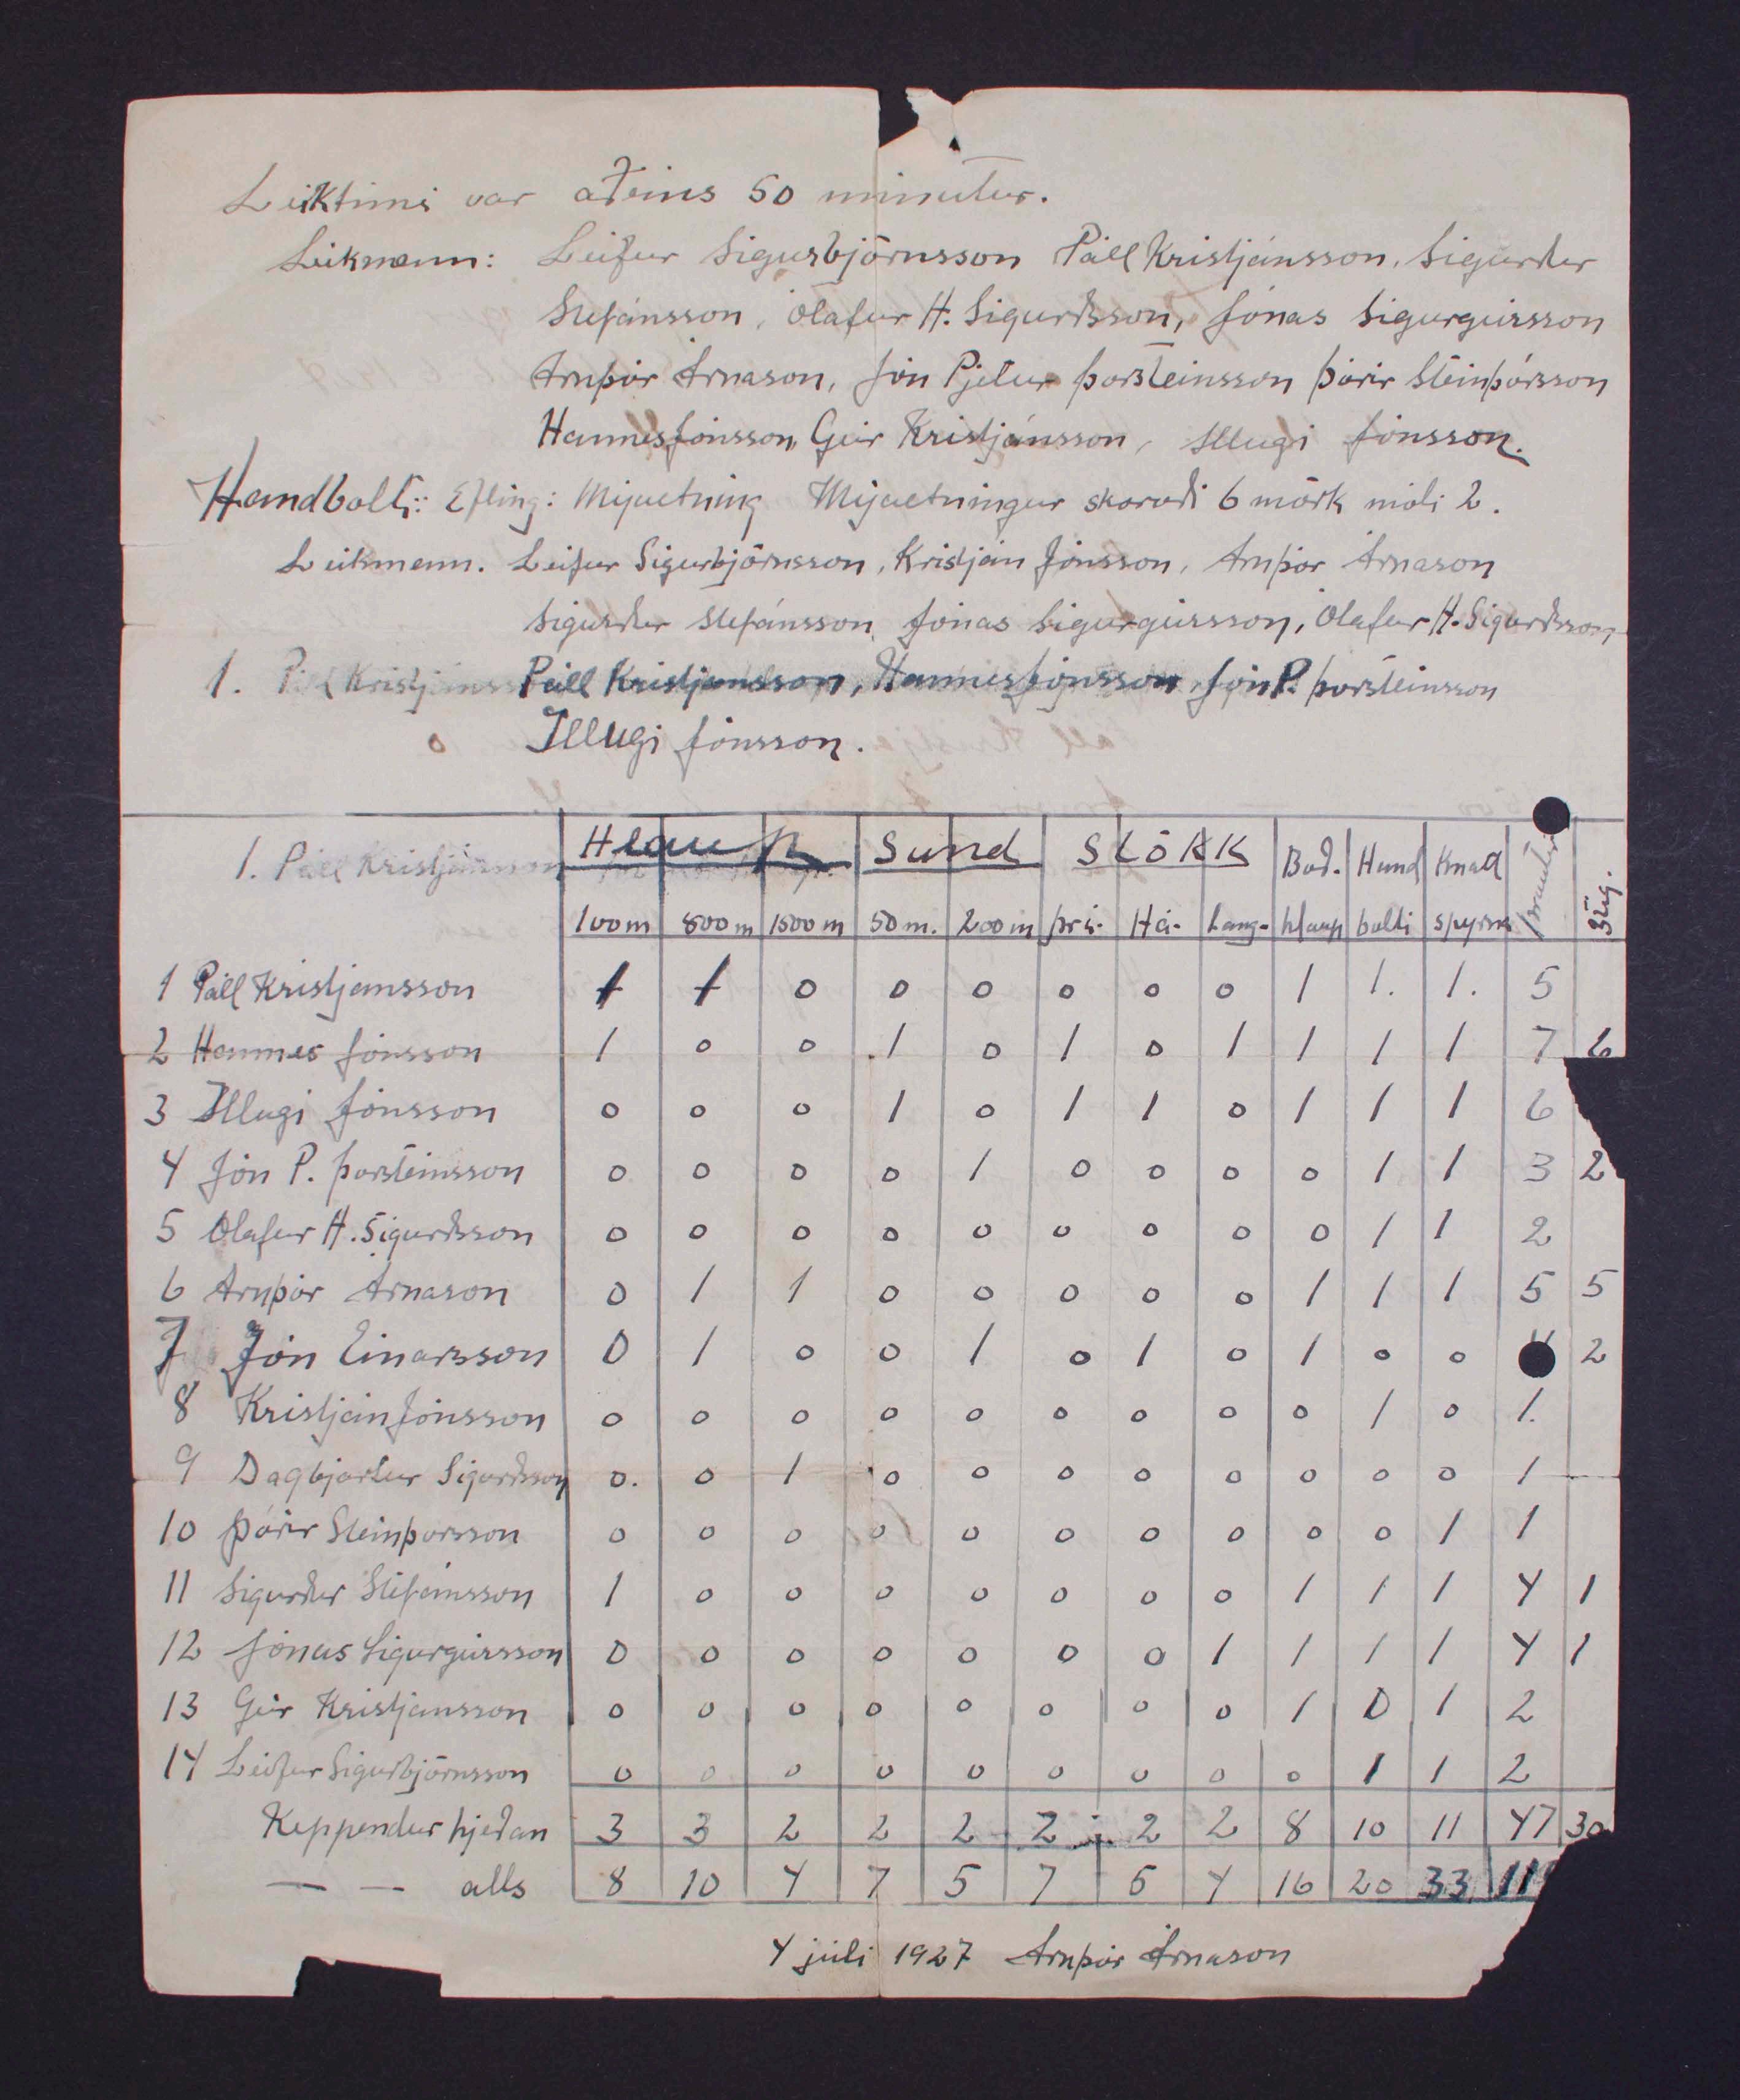 Leiktími var aðeins 50 mínútur.
Leikmenn: Leifur Sigurbjörnsson Páll Kristjánsson, Sigurður
Stefánsson, Ólafur H. Sigurðsson, Jónas Sigurgeirsson
Arnþór Árnason, Jón Pjetur Þorsteinsson Þórir Steinþórsson
Hannes Jónsson, Geir Kristjánsson, Illugi Jónsson.
Handbolti: Efling: Mývetning Mývetningur skoraði 6 mörk móti 2.
Leikmenn. Leifur Sigurbjörnsson, Kristján Jónsson, Arnþór Árnason
Sigurður Stefánsson, Jónas Sigurgeirsson, Ólafur H. Sigurðsson
1. Páll Kristjánsson Páll Kristjánsson, Hannes Jónsson, Jón P. Þorsteinsson
Illugi Jónsson.
1. Páll Kristjánsson Hlaup Sund Stökk Boð- Hand Knatt Þrautir Stig.
100 m 800 m 1500 m 50 m. 200 m Þrí- Há- Lang- hlaup bolti spyrna
1 Páll Kristjansson 1 1 0 0 0 0 0 0 1 1. 1. 5
2 Hannes Jónsson 1 0 0 1 0 1 0 1 1 1 1 7 6
3 Illugi Jónsson 0 0 0 1 0 1 1 0 1 1 1 6
4 Jón P. Þorsteinsson 0 0 0 0 1 0 0 0 0 1 1 3 2
5 Ólafur H. Sigurðsson 0 0 0 0 0 0 0 0 0 1 1 2
6 Arnþór Árnason 0 1 1 0 0 0 0 0 1 1 1 5 5
7 Jón Einarsson 0 1 0 0 1 0 1 0 1 0 0 2
8 Kristján Jónsson 0 0 0 0 0 0 0 0 0 1 0 1.
9 Dagbjartur Sigurðsson 0. 0 1 0 0 0 0 0 0 0 0 1
10 Þórir Steinþorsson 0 0 0 0 0 0 0 0 0 0 1 1
11 Sigurður Stefánsson 1 0 0 0 0 0 0 0 1 1 1 4 1
12 Jónas Sigurgeirsson 0 0 0 0 0 0 0 1 1 1 1 4 1
13 Geir Kristjansson 0 0 0 0 0 0 0 0 1 0 1 2
14 Leifur Sigurbjörnsson 0 0 0 0 0 0 0 0 0 1 1 2
Keppendur hjeðan 3 3 2 2 2 2 2 2 8 10 11 47 30
— — alls 8 10 4 7 5 7 5 4 16 20 33
4 júlí 1927 Arnþór Árnason